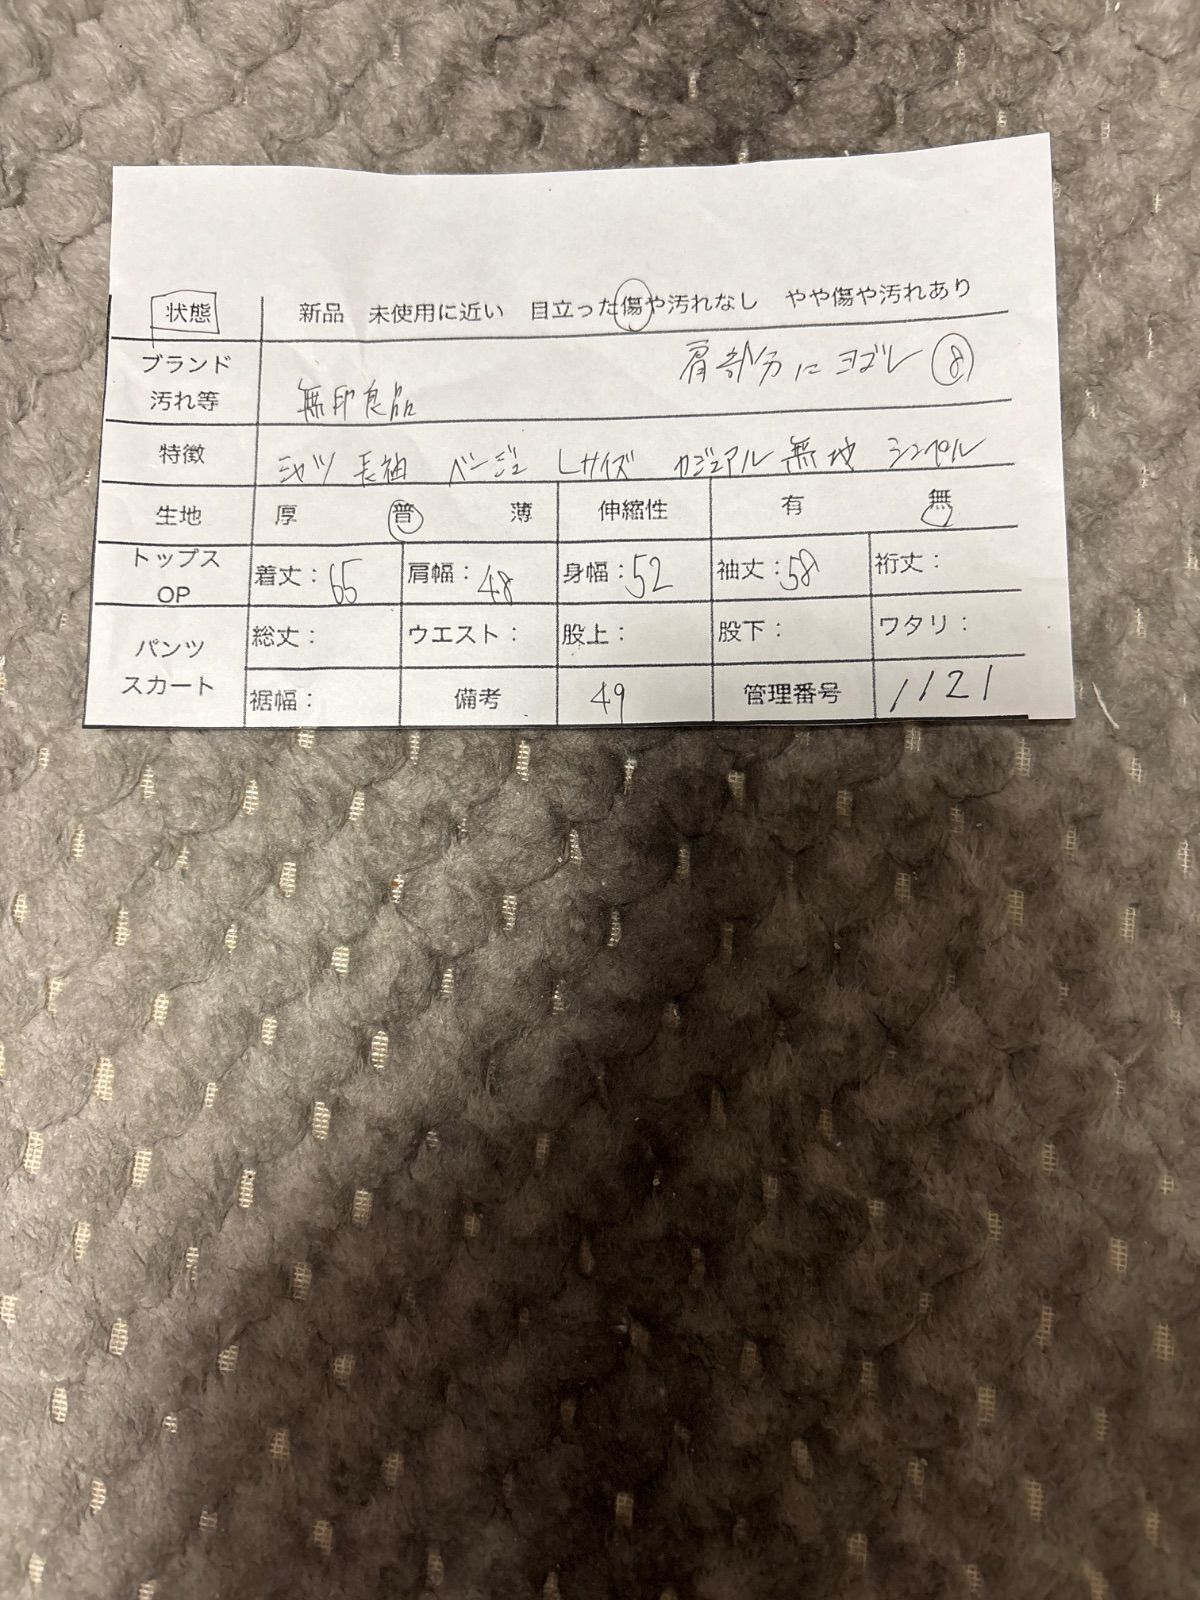 状態 新品 未使用に近い 目立った傷や汚れなし やや傷や汚れあり
ブランド 汚れ等 無印良品 肩部分にヨゴレ ⑧
特徴 シャツ 長袖 ベージュ Lサイズ カジュアル 無地 シンプル
生地 厚 普 薄 伸縮性 有 無
トップス OP 着丈：65 肩幅：48 身幅：52 袖丈：58 裄丈：
パンツ スカート 総丈： ウエスト： 股上： 股下： ワタリ：
裾幅： 備考 49 管理番号 1121